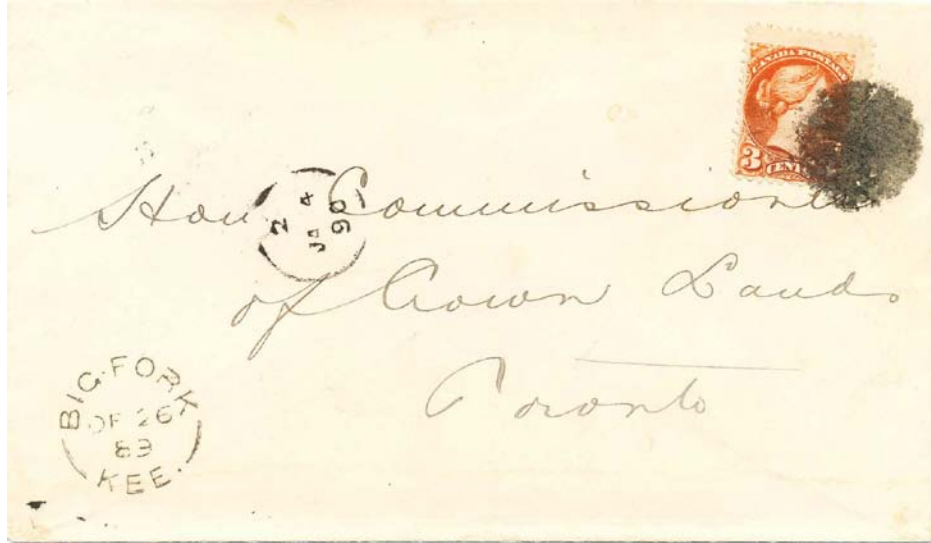 CANADA POSTAGE
3
CENTS
Hon Commissioner
of Crown Lands
Toronto
2
JA 4
90
BIG·FORK
DE 26
89
KEE.